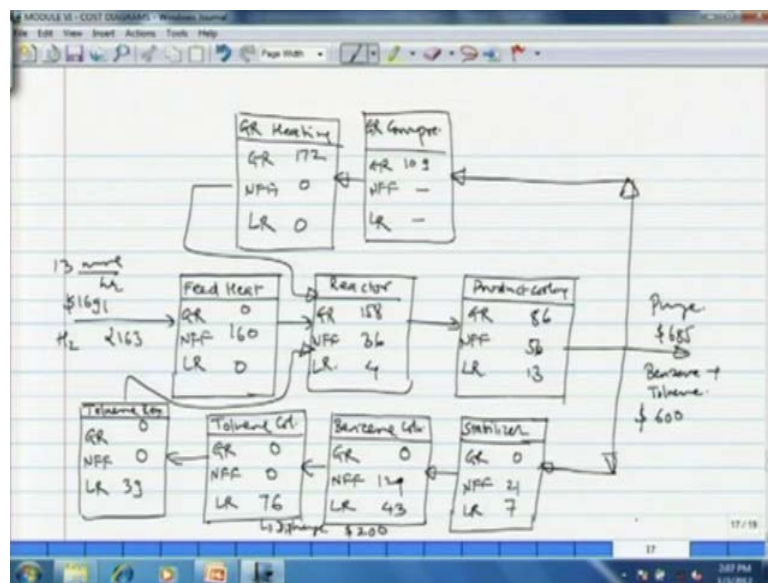 MODULE VI - COST DIAGRAMS - Windows Journal
File Edit View Insert Actions Tools Help
Page Width
GR Heating
GR 172
NFF 0
LR 0
GR Compre.
GR 109
NFF —
LR —
13
hr
$1691
H2 2163
Feed Heat
GR 0
NFF 160
LR 0
Reactor
GR 158
NFF 36
LR. 4
Product cooling
GR 86
NFF 56
LR 13
Purge.
$685
Benzene →
Toluene.
$600
Toluene
GR 0
NFF 0
LR 39
Toluene Col.
GR 0
NFF 0
LR 76
Benzene Col.
GR 0
NFF 129
LR 43
Stabilizer
GR 0
NFF 21
LR 7
$200
17 / 19
17
2:07 PM